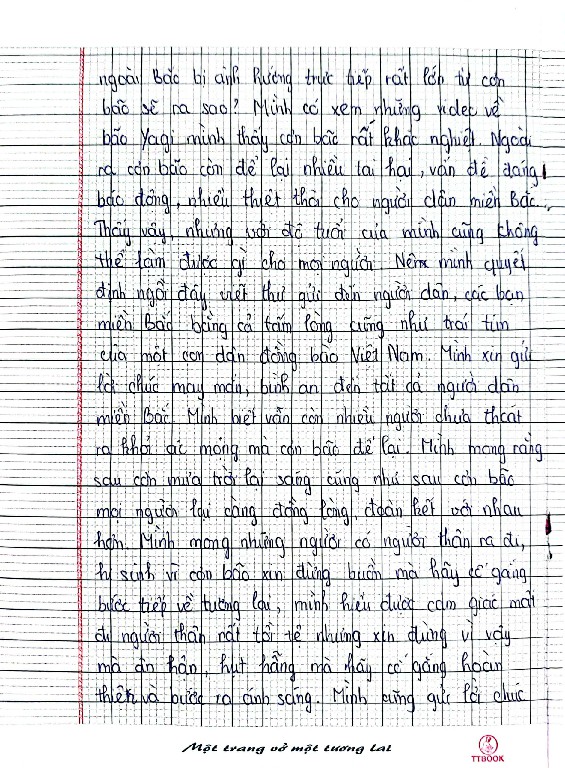 ngoài Bắc bị ảnh hưởng trực tiếp rất lớn từ cơn
bão sẽ ra sao? Mình có xem những video về
bão Yagi mình thấy cơn bão rất khắc nghiệt. Ngoài
ra cơn bão còn để lại nhiều tai hại, vấn đề đáng
báo động, nhiều thiệt thòi cho người dân miền Bắc...
Thấy vậy, nhưng với độ tuổi của mình cũng không
thể làm được gì cho mọi người. Nên mình quyết
định ngồi đây viết thư gửi đến người dân, các bạn
miền Bắc bằng cả tấm lòng cũng như trái tim
của một con dân đồng bào Việt Nam. Mình xin gửi
lời chúc may mắn, bình an đến tất cả người dân
miền Bắc. Mình biết vẫn còn nhiều người chưa thoát
ra khỏi ác mộng mà cơn bão để lại. Mình mong rằng
sau cơn mưa trời lại sáng cũng như sau cơn bão
mọi người lại càng đồng lòng, đoàn kết với nhau
hơn. Mình mong những người có người thân ra đi,
hi sinh vì cơn bão xin đừng buồn mà hãy cố gắng
bước tiếp về tương lai, mình hiểu được cảm giác mất
đi người thân rất tồi tệ nhưng xin đừng vì vậy
mà ân hận, hụt hẫng mà hãy cố gắng hoàn
thiện và bước ra ánh sáng. Mình cũng gửi lời chúc
Một trang vở một tương lai
TTBOOK